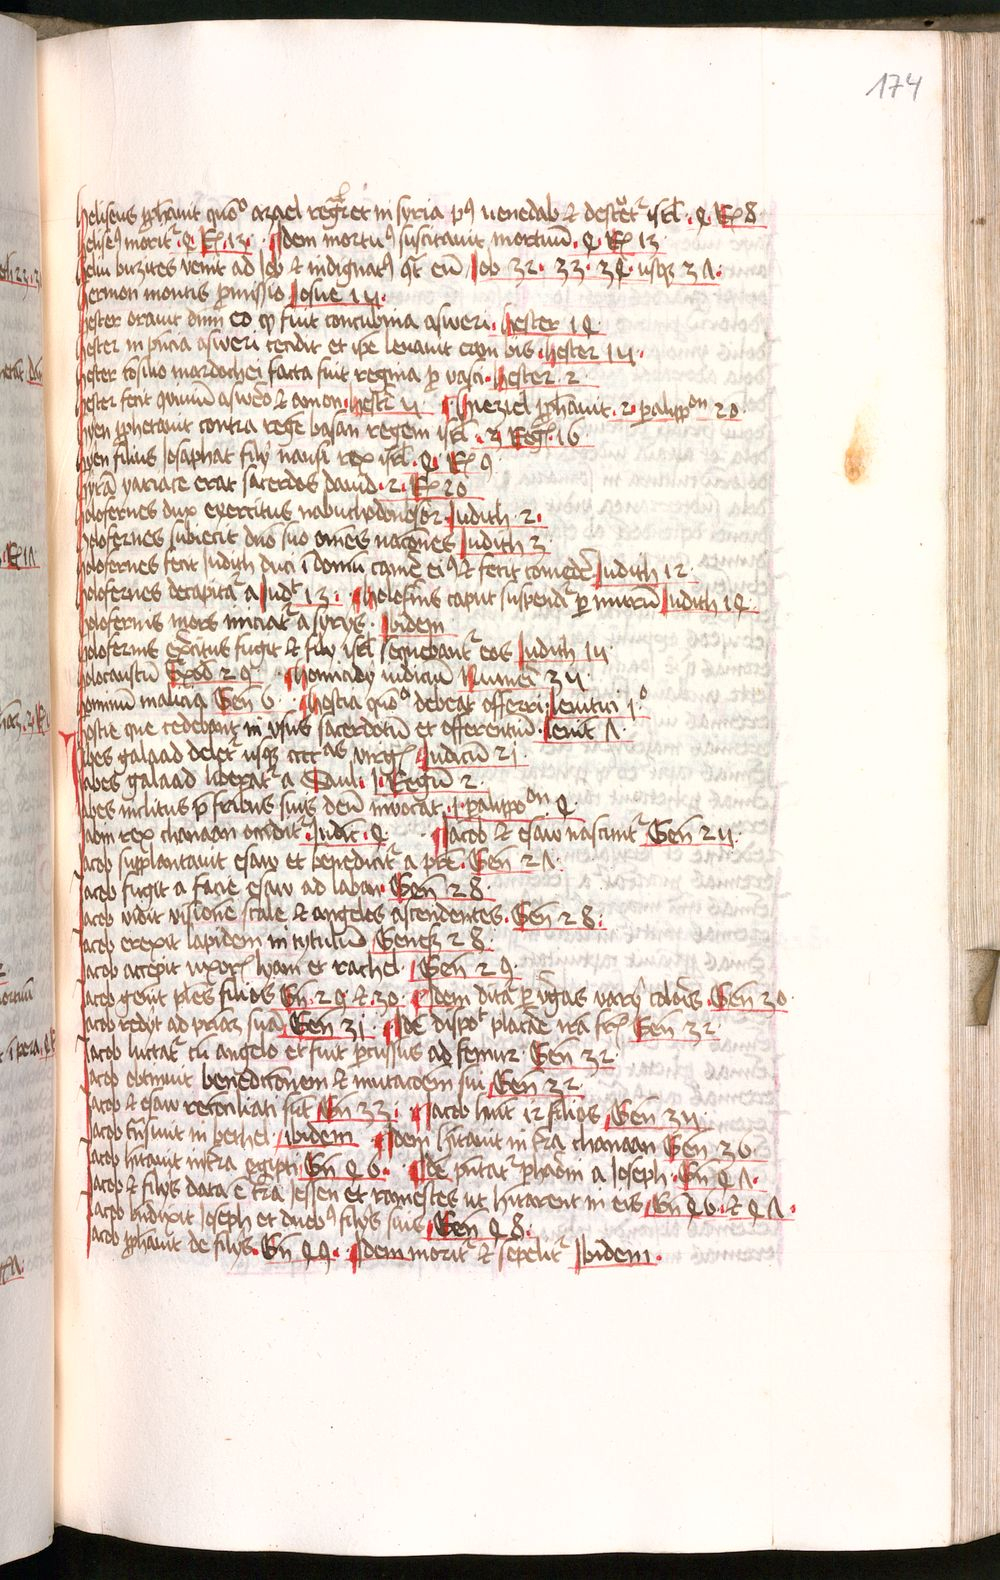 174
heliseus ꝓhauit quōo azael regͬet in syria pꝰ uenedab ⁊ destͬetᷣ isrl̄ . 4 Rͤ 8
helisеꝰ moritᷣ . 4 Rͤ . 13 . Idem mortuꝰ suscitauit mortuū . 4 Rͤ 13
heliu buzites venit ad Job ⁊ indignatꝰ ē eū Job 32 . 33 . 34 usqꝫ 37 .
hermon montis ꝓmissio Josue 14 .
hester orauit dnm eo qꝫ fuit concubina asweri . hester 14
hester in pn̄cia asweri cecidit et ipe leuauit eam bis . hester 15 .
hester cōsilio mardochei facta fuit regina ꝓ vasti . hester . 2
hester fecit ꝯuiuiū aswero ⁊ amon . hestͬ 5 hieziel ꝓhauit . 2 . palippon 20
hyen ꝓhetauit contra regē basan regem isrl̄ . 3 Regͫ . 16
hyen filius Josaphat filij namsi rex isrl̄ . 4 . Rͤ 9
hyrā yariace erat sacerdos dauid . 2 . Rͤ 20
holofernes dux exercitus nabuchodonosor . Judith . 2 .
holofernes subiecit dnō suo om̄es nacōnes Judith 3
holofernes fecit Judith duci ī domū cōuiē eiꝰ ⁊ fecit comedē Judith 12 .
holofernes decapitatᷣ a Judͭ 13 . holofnis caput suspendiᷣ ꝑ murum Judith 14
holofernis mors nūciatᷣ assyrijs . Ibidem
holofernis exͨitus fugit ⁊ filij isrl̄ sequebantᷣ eos Judith 15
holocaustū Exod 29 homicidij iudiciū Numeri 35 .
hominū malicia Gen 6 . hostia quōo debeat offerri . leuitici 1o
hostie que cedebant in vsus sacerdotū et offerentium . leuit 7 .
Jabes galaad deletᷣ usqꝫ cccc as virgͫ Judicū 21
Jabes galaad liberatᷣ a Saul . 1 Regum 2 .
Jabes inclitus p̄ fratribus suis deū inuocat . 1 . palippo on 4
Jabin rex chanaan occiditᷣ . Judic . 4 Jacob ⁊ esaw nascuntᷣ Gen 25 .
Jacob supplantauit esaw et benedicitᷣ a pr̄e . Gen 27 .
Jacob fugit a facie esaw ad laban Gen 28 .
Jacob uidit visionē scale ⁊ angelos ascendentes . Gen 28 .
Jacob erexit lapidem in tytulum Genes 28 .
Jacob accepit vxorͫ lyam et rachel . Gen 29 .
Jacob genuit plēs filios Gn̄ . 29 ⁊ 30 . Idem ditatᷣ ꝑ vͥgas varij coloris . Gen 30 .
Jacob redijt ad priam suā Gen 31 . Idē dyspot placāe ira frͫ Gen 32
Jacob luctatᷣ cū angelo et fuit ꝑcussus ad femur Gen 32
Jacob obtinuit benedictionem ⁊ mutacōem sui Gen 32 .
Jacob ⁊ esaw reconciliati sūt Gn̄ 33 . Jacob huit 12 filios Gen 35 .
Jacob trāsiuit in bethel . ibidem Idem hitauit in tͬra chanaan Gen 36
Jacob hitauit in tͬra egipti . Gn̄ 46 . Idē pn̄tatᷣ pharaōni a Joseph . Gn̄ 47 .
Jacob ⁊ filijs data ē tͬra Jessen et ramesses ut hitarent in eis Gn̄ 46 . ⁊ 47 .
Jacob bn̄dixit Joseph et duobꝰ filijs suis Gen 48 .
Jacob ꝓhauit de filijs . Gn̄ 49 . Idem moritᷣ ⁊ sepelitᷣ Ibidem .